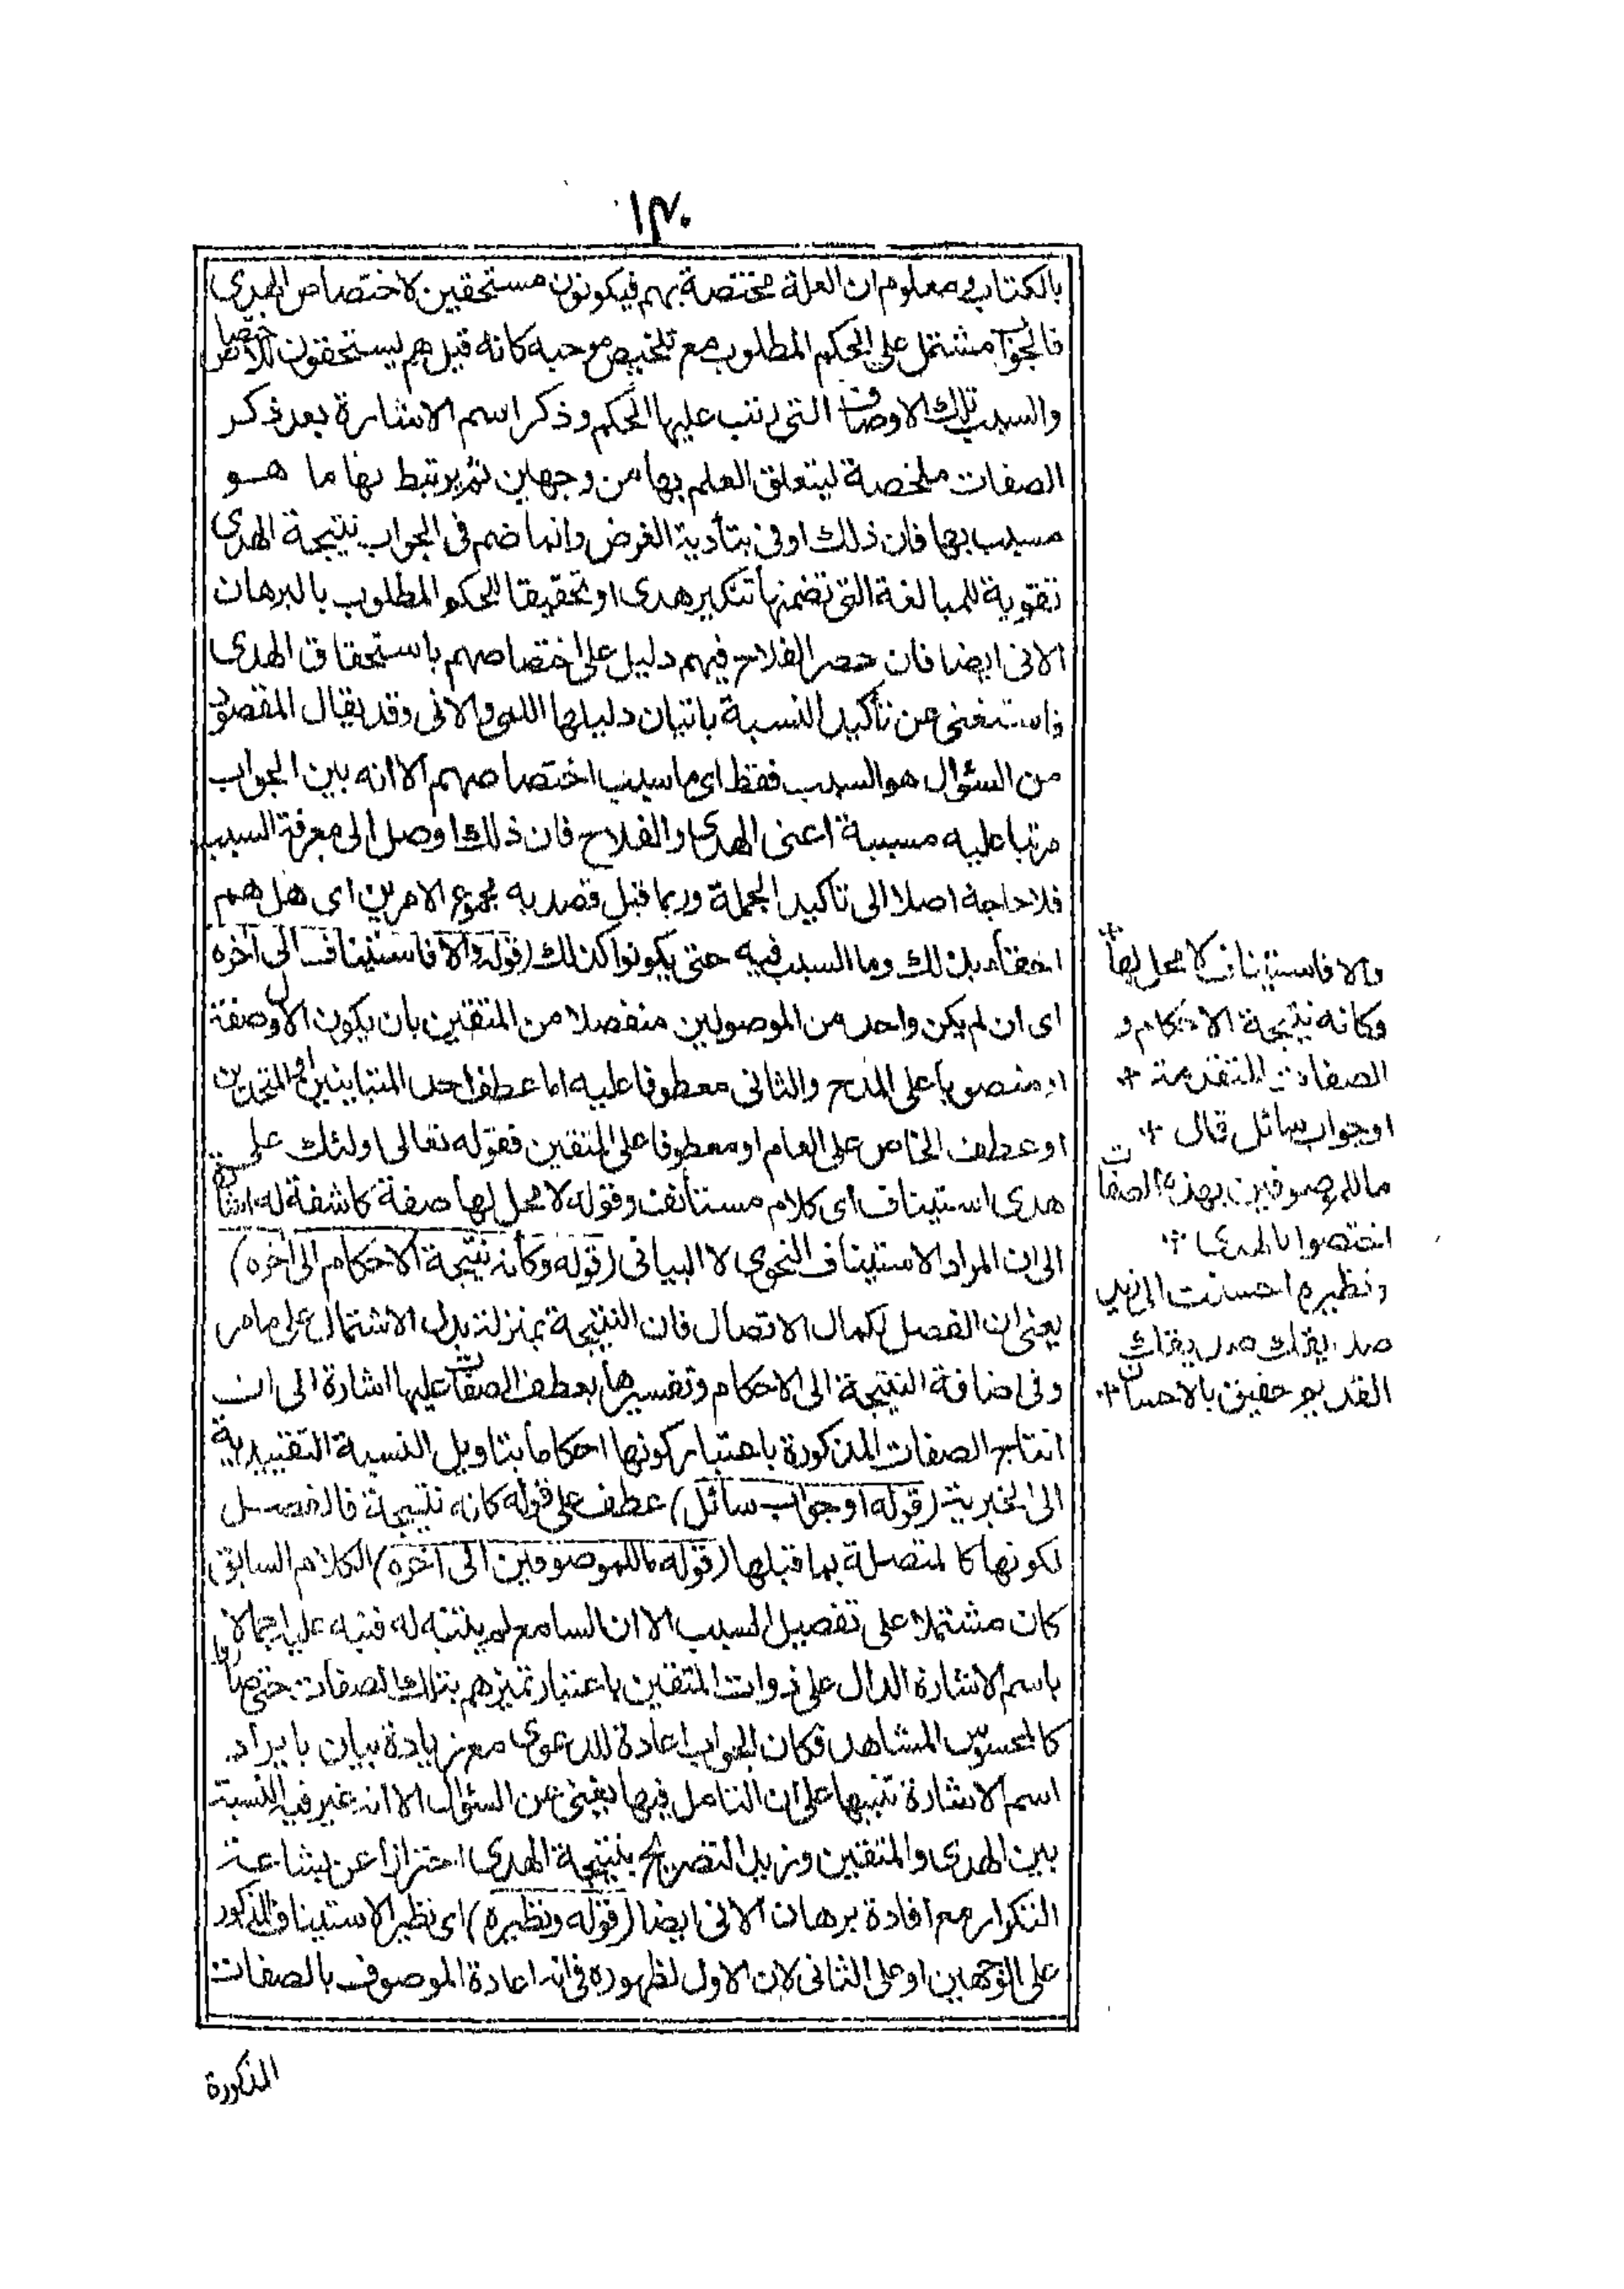 ١٣٠
بالكتاب ومعلوم ان العلة مختصة بهم فيكونون مستحقين لاختصاص الهدى
فالجواب مشتمل على الحكم المطلوب مع تلخيص موجبه كانه قيل هم يستحقون للاختصاص
والسبب تلك الاوصاف التى رتب عليها الحكم وذكر اسم الاشارة بعد ذكر
الصفات ملخصة ليتعلق العلم بها من وجهين ثم يرتبط بها ما هو
مسبب بها فان ذلك اوفى بتأدية الغرض وانما ضم فى الجواب نتيجة الهدى
تقوية للمبالغة التى تضمنها تنكير هدى او تحقيقا للحكم المطلوب بالبرهان
الانى ايضا فان حصر الفلاح فيهم دليل على اختصاصهم باستحقاق الهدى
فاستغنى عن تأكيد النسبة باتيان دليلها اللمى والانى وقد يقال المقصود
من السؤال هو السبب فقط اى ما سبب اختصاصهم الا انه بين الجواب
مرتبا عليه مسببة اعنى الهدى والفلاح فان ذلك اوصل الى معرفة السبب
فلا حاجة اصلا الى تاكيد الجملة وربما قيل قصد به مجموع الامرين اى هل هم
احقاء بذلك وما السبب فيه حتى يكونوا كذلك (قوله والا فاستيناف الى آخره
اى ان لم يكن واحد من الموصولين منفصلا من المتقين بان يكون الاول صفة
او منصوبا على المدح والثانى معطوفا عليه اما عطف احد المتباينين او المتحدين
او عطف الخاص على العام او معطوفا على المتقين فقوله تعالى اولئك على
هدى استيناف اى كلام مستأنف وقوله لا محل لها صفة كاشفة له اشارة
الى ان المراد الاستيناف النحوى لا البيانى (قوله وكانه نتيجة الاحكام الى آخره)
يعنى ان الفصل لكمال الاتصال فان النتيجة بمنزلة بدل الاشتمال على ما مر
وفى اضافة النتيجة الى الاحكام وتفسيرها بعطف الصفات عليها اشارة الى ان
انتاج الصفات المذكورة باعتبار كونها احكاما بتاويل النسبة التقييدية
الى الخبرية (قوله او جواب سائل) عطف على قوله كانه نتيجة فالفصل
لكونها كالمتصلة بما قبلها (قوله ما للموصوفين الى آخره) الكلام السابق
كان مشتملا على تفصيل السبب الا ان السامع لم يتنبه له فنبه عليه اجمالا
باسم الاشارة الدال على ذوات المتقين باعتبار تميزهم بتلك الصفات حتى صاروا
كالمحسوس المشاهد فكان الجواب اعادة للدعوى مع زيادة بيان بايراد
اسم الاشارة تنبيها على ان التامل فيها يغنى عن السؤال الا انه غير فيه النسبة
بين الهدى والمتقين وزيد التصريح بنتيجة الهدى احترازا عن بشاعة
التكرار مع افادة برهان الانى ايضا (قوله ونظيره) اى نظير الاستيناف المذكور
على الوجهين او على الثانى لان الاول لظهوره فى انه اعادة الموصوف بالصفات
المذكورة
والا فاستيناف لا محل لها
وكانه نتيجة الاحكام و
الصفات المتقدمة
او جواب سائل قال
ما للموصوفين بهذه الصفات
اختصوا بالهدى
ونظيره احسنت الى زيد
صديقك صديقك
القديم حقيق بالاحسان